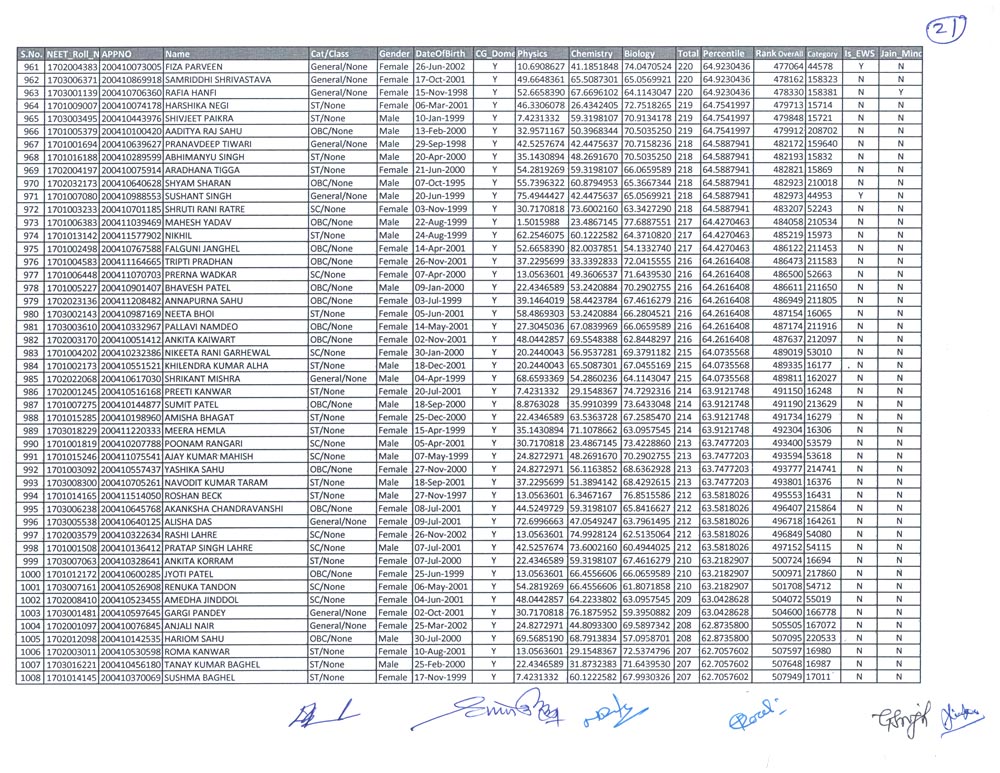 21
S.No. NEET_Roll_N APPNO Name Cat/Class Gender DateOfBirth CG_Dome Physics Chemistry Biology Total Percentile Rank OverAll Category Is_EWS Jain_Minc
961 1702004383 200410073005 FIZA PARVEEN General/None Female 26-Jun-2002 Y 10.6908627 41.1851848 74.0470524 220 64.9230436 477064 44578 Y N
962 1703006371 200410869918 SAMRIDDHI SHRIVASTAVA General/None Female 17-Oct-2001 Y 49.6648361 65.5087301 65.0569921 220 64.9230436 478162 158323 N N
963 1703001139 200410706360 RAFIA HANFI General/None Female 15-Nov-1998 Y 52.6658390 67.6696102 64.1143047 220 64.9230436 478330 158381 N Y
964 1701009007 200410074178 HARSHIKA NEGI ST/None Female 06-Mar-2001 Y 46.3306078 26.4342405 72.7518265 219 64.7541997 479713 15714 N N
965 1703003495 200410443976 SHIVJEET PAIKRA ST/None Male 10-Jan-1999 Y 7.4231332 59.3198107 70.9134178 219 64.7541997 479848 15721 N N
966 1701005379 200410100420 AADITYA RAJ SAHU OBC/None Male 13-Feb-2000 Y 32.9571167 50.3968344 70.5035250 219 64.7541997 479912 208702 N N
967 1701001694 200410639627 PRANAVDEEP TIWARI General/None Male 29-Sep-1998 Y 42.5257674 42.4475637 70.7158236 218 64.5887941 482172 159640 N N
968 1701016188 200410289599 ABHIMANYU SINGH ST/None Male 20-Apr-2000 Y 35.1430894 48.2691670 70.5035250 218 64.5887941 482193 15832 N N
969 1702004197 200410075914 ARADHANA TIGGA ST/None Female 21-Jun-2000 Y 54.2819269 59.3198107 66.0659589 218 64.5887941 482821 15869 N N
970 1702032173 200410640628 SHYAM SHARAN OBC/None Male 07-Oct-1995 Y 55.7396322 60.8794953 65.3667344 218 64.5887941 482923 210018 N N
971 1701007080 200410988553 SUSHANT SINGH General/None Male 20-Jun-1999 Y 75.4944427 42.4475637 65.0569921 218 64.5887941 482973 44953 Y N
972 1701003233 200410701185 SHRUTI RANI RATRE SC/None Female 03-Nov-1999 Y 30.7170818 73.6002160 63.3427290 218 64.5887941 483207 52243 N N
973 1701006383 200411039469 MAHESH YADAV OBC/None Male 22-Aug-1999 Y 1.5015988 23.4867145 77.6887551 217 64.4270463 484058 210534 N N
974 1701013142 200411577902 NIKHIL ST/None Male 24-Aug-1999 Y 62.2546075 60.1222582 64.3710820 217 64.4270463 485219 15973 N N
975 1701002498 200410767588 FALGUNI JANGHEL OBC/None Female 14-Apr-2001 Y 52.6658390 82.0037851 54.1332740 217 64.4270463 486122 211453 N N
976 1701004583 200411164665 TRIPTI PRADHAN OBC/None Female 26-Nov-2001 Y 37.2295699 33.3392833 72.0415555 216 64.2616408 486473 211583 N N
977 1701006448 200411070703 PRERNA WADKAR SC/None Female 07-Apr-2000 Y 13.0563601 49.3606537 71.6439530 216 64.2616408 486500 52663 N N
978 1701005227 200410901407 BHAVESH PATEL OBC/None Male 09-Jan-2000 Y 22.4346589 53.2420884 70.2902755 216 64.2616408 486611 211650 N N
979 1702023136 200411208482 ANNAPURNA SAHU OBC/None Female 03-Jul-1999 Y 39.1464019 58.4423784 67.4616279 216 64.2616408 486949 211805 N N
980 1702002143 200410987169 NEETA BHOI ST/None Female 05-Jun-2001 Y 58.4869303 53.2420884 66.2804521 216 64.2616408 487154 16065 N N
981 1703003610 200410332967 PALLAVI NAMDEO OBC/None Female 14-May-2001 Y 27.3045036 67.0839969 66.0659589 216 64.2616408 487174 211916 N N
982 1702003170 200410051412 ANKITA KAIWART OBC/None Female 02-Nov-2001 Y 48.0442857 69.5548388 62.8448297 216 64.2616408 487637 212097 N N
983 1701004202 200410232386 NIKEETA RANI GARHEWAL SC/None Female 30-Jan-2000 Y 20.2440043 56.9537281 69.3791182 215 64.0735568 489019 53010 N N
984 1701002173 200410551521 KHILENDRA KUMAR ALHA ST/None Male 18-Dec-2001 Y 20.2440043 65.5087301 67.0455169 215 64.0735568 489335 16177 N N
985 1702022068 200410617030 SHRIKANT MISHRA General/None Male 04-Apr-1999 Y 68.6593369 54.2860236 64.1143047 215 64.0735568 489811 162027 N N
986 1702001245 200410516168 PREETI KANWAR ST/None Female 20-Jul-2001 Y 7.4231332 29.1548367 74.7292316 214 63.9121748 491150 16248 N N
987 1701007275 200410144877 SUMIT PATEL OBC/None Male 18-Sep-2000 Y 8.8763028 35.9910399 73.6433048 214 63.9121748 491190 213629 N N
988 1701015285 200410198960 AMISHA BHAGAT ST/None Female 25-Dec-2000 Y 22.4346589 63.5363728 67.2585470 214 63.9121748 491734 16279 N N
989 1703018229 200411220333 MEERA HEMLA ST/None Female 15-Apr-1999 Y 35.1430894 71.1078662 63.0957545 214 63.9121748 492304 16306 N N
990 1701001819 200410207788 POONAM RANGARI SC/None Male 05-Apr-2001 Y 30.7170818 23.4867145 73.4228860 213 63.7477203 493400 53579 N N
991 1701015246 200411075541 AJAY KUMAR MAHISH SC/None Male 07-May-1999 Y 24.8272971 48.2691670 70.2902755 213 63.7477203 493594 53618 N N
992 1701003092 200410557437 YASHIKA SAHU OBC/None Female 27-Nov-2000 Y 24.8272971 56.1163852 68.6362928 213 63.7477203 493777 214741 N N
993 1703008300 200410705261 NAVODIT KUMAR TARAM ST/None Male 18-Sep-2001 Y 37.2295699 51.3894142 68.4292615 213 63.7477203 493801 16376 N N
994 1701014165 200411514050 ROSHAN BECK ST/None Male 27-Nov-1997 Y 13.0563601 6.3467167 76.8515586 212 63.5818026 495553 16431 N N
995 1703006238 200410645768 AKANKSHA CHANDRAVANSHI OBC/None Female 08-Jul-2001 Y 44.5249729 59.3198107 65.8416627 212 63.5818026 496407 215864 N N
996 1703005538 200410640125 ALISHA DAS General/None Female 09-Jul-2001 Y 72.6996663 47.0549247 63.7961495 212 63.5818026 496718 164261 N N
997 1702003579 200410322634 RASHI LAHRE SC/None Female 26-Nov-2002 Y 13.0563601 74.9928124 62.5135064 212 63.5818026 496849 54080 N N
998 1701001508 200410136412 PRATAP SINGH LAHRE SC/None Male 07-Jul-2001 Y 42.5257674 73.6002160 60.4944025 212 63.5818026 497152 54115 N N
999 1703007063 200410328641 ANKITA KORRAM ST/None Female 07-Jul-2000 Y 22.4346589 59.3198107 67.4616279 210 63.2182907 500724 16694 N N
1000 1701012172 200410600285 JYOTI PATEL OBC/None Female 25-Jun-1999 Y 13.0563601 66.4556606 66.0659589 210 63.2182907 500971 217860 N N
1001 1703007161 200410526908 RENUKA TANDON SC/None Female 06-May-2001 Y 54.2819269 66.4556606 61.8071858 210 63.2182907 501708 54712 N N
1002 1702008410 200410523455 AMEDHA JINDDOL SC/None Female 04-Jun-2001 Y 48.0442857 64.2233802 63.0957545 209 63.0428628 504072 55019 N N
1003 1703001481 200410597645 GARGI PANDEY General/None Female 02-Oct-2001 Y 30.7170818 76.1875952 59.3950882 209 63.0428628 504600 166778 N N
1004 1702001097 200410076845 ANJALI NAIR General/None Female 25-Mar-2002 Y 24.8272971 44.8093300 69.5897342 208 62.8735800 505505 167072 N N
1005 1702012098 200410142535 HARIOM SAHU OBC/None Male 30-Jul-2000 Y 69.5685190 68.7913834 57.0958701 208 62.8735800 507095 220533 N N
1006 1702003011 200410530598 ROMA KANWAR ST/None Female 10-Aug-2001 Y 13.0563601 29.1548367 72.5374796 207 62.7057602 507597 16980 N N
1007 1703016221 200410456180 TANAY KUMAR BAGHEL ST/None Male 25-Feb-2000 Y 22.4346589 31.8732383 71.6439530 207 62.7057602 507648 16987 N N
1008 1701014145 200410370069 SUSHMA BAGHEL ST/None Female 17-Nov-1999 Y 7.4231332 60.1222582 67.9930326 207 62.7057602 507949 17011 N N